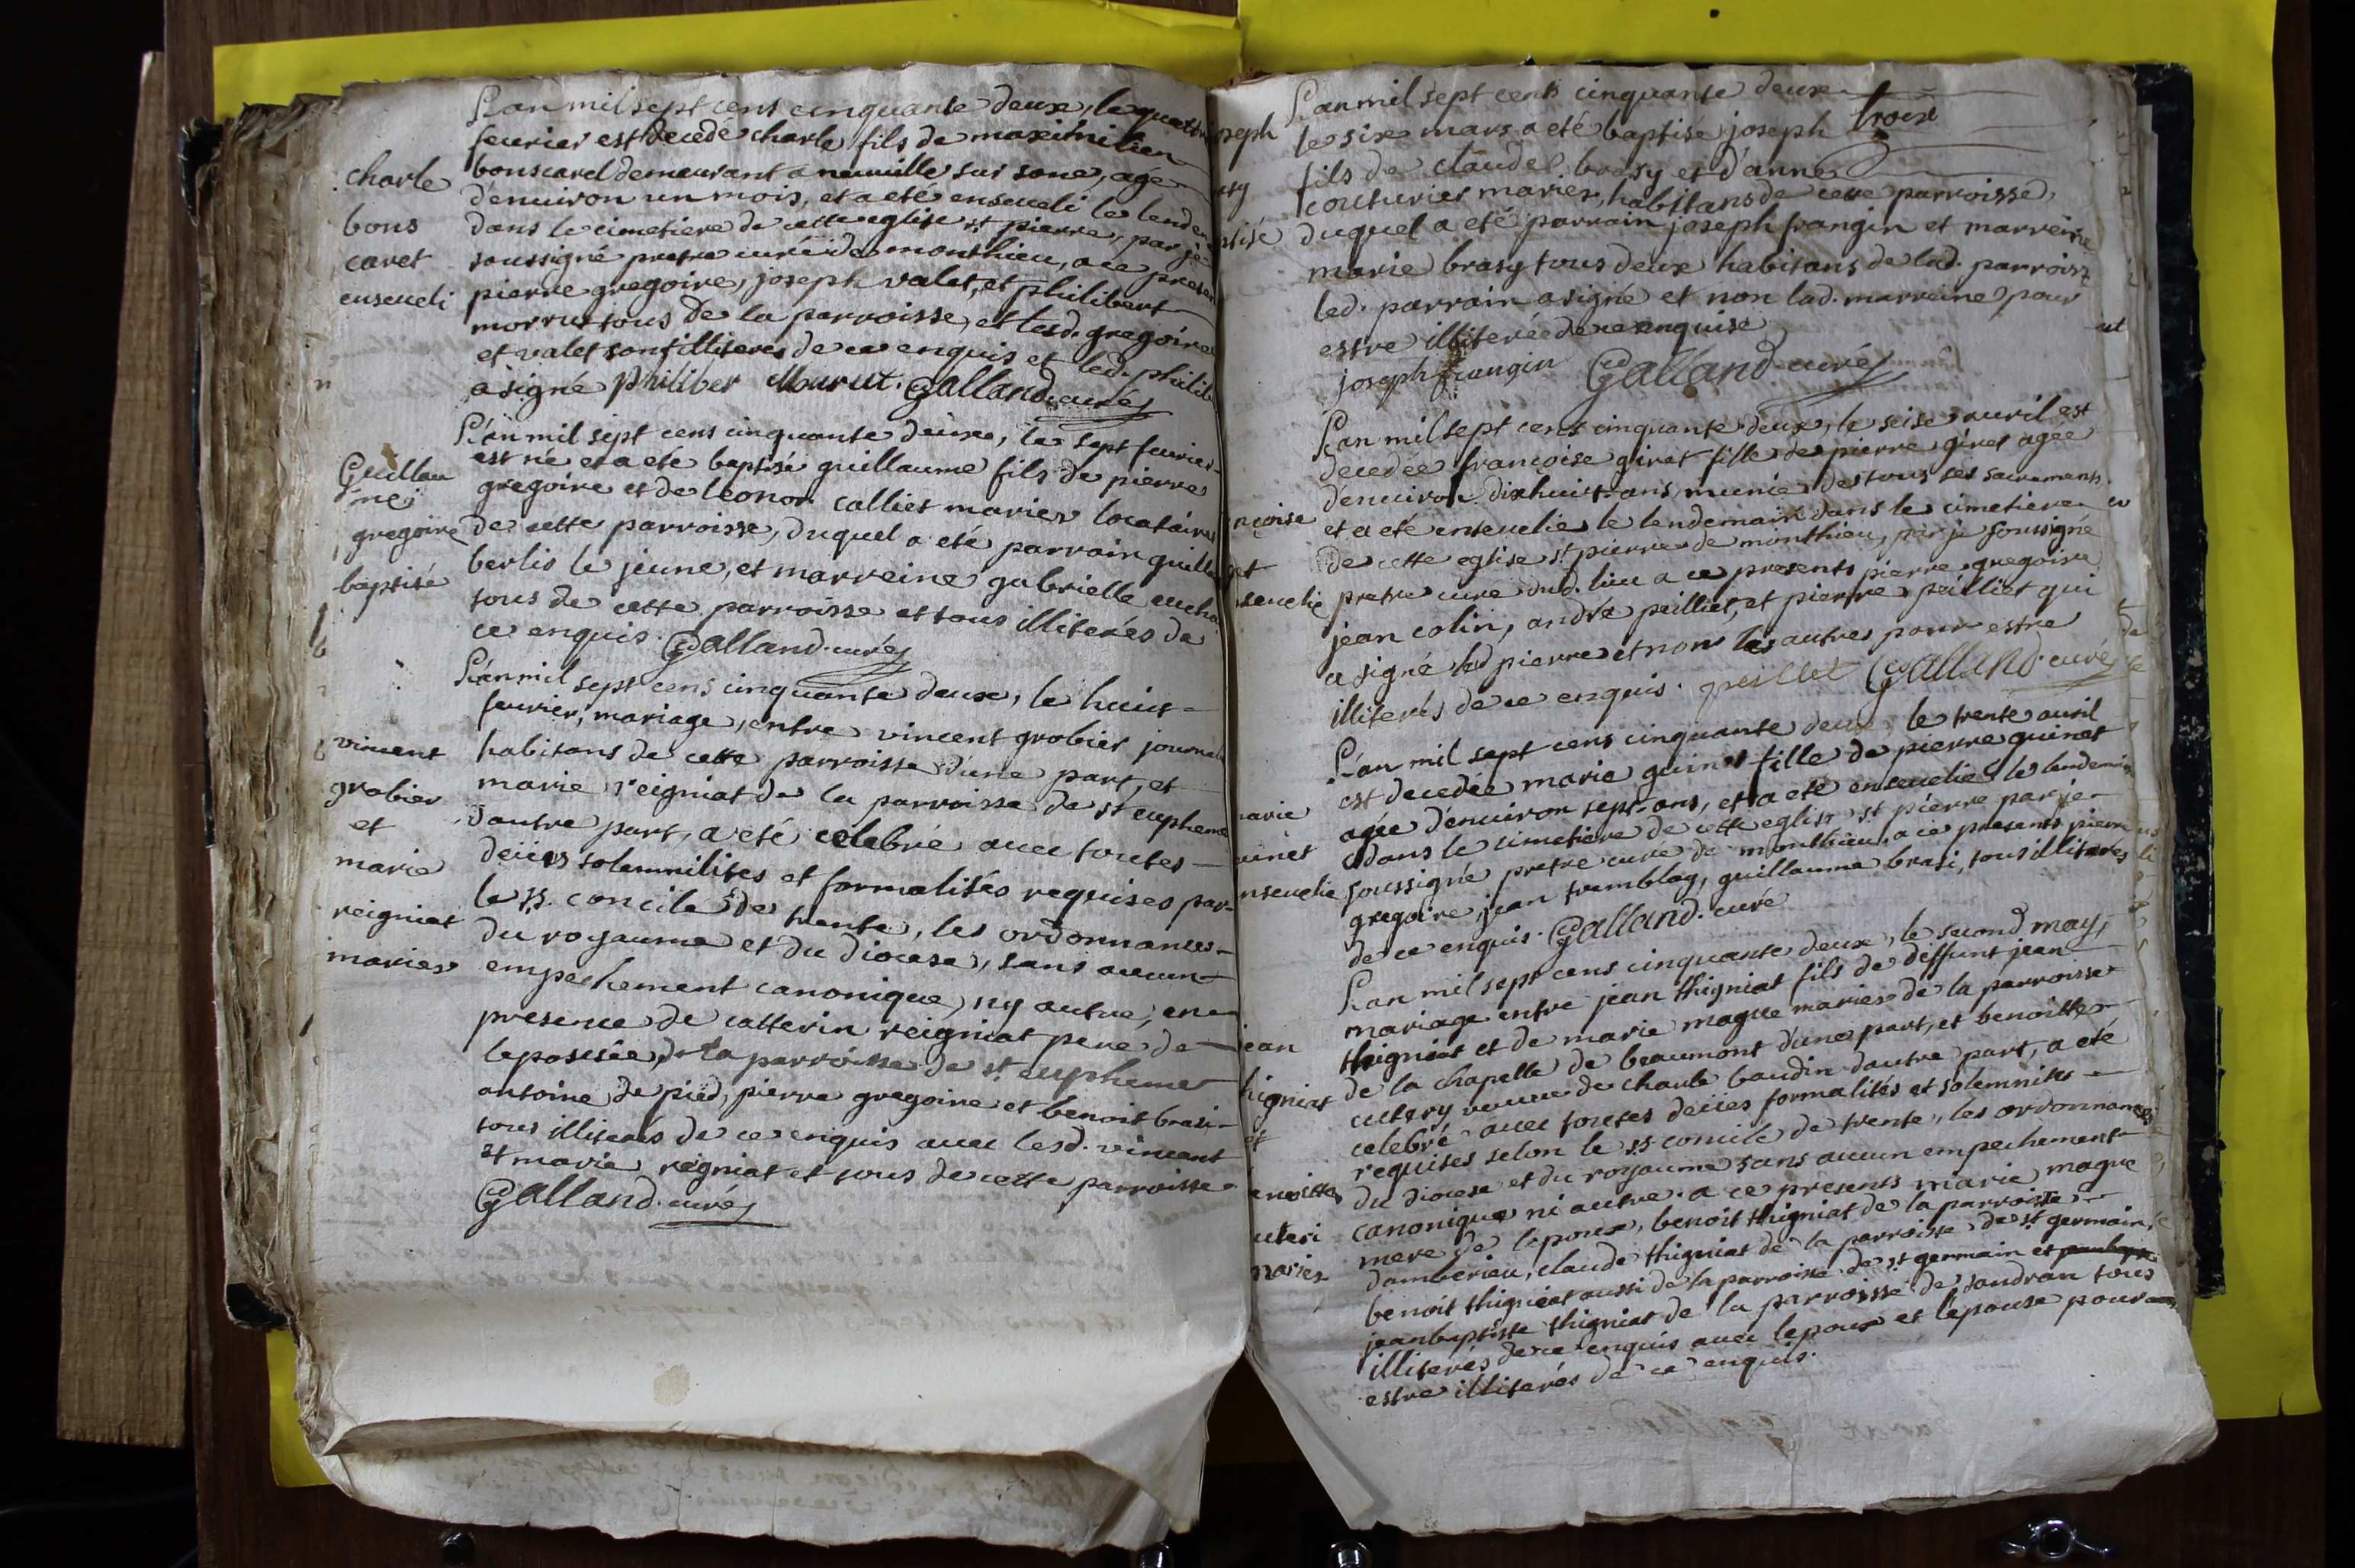 L'an mil sept cens cinquante deux, le quatre
feurier est decedé charle fils de maximilien
bonscaret demeurant a neuuille sur sone, age
d'enuiron un mois, et a eté enseueli le lendem
dans le cimetiere de cette eglise st pierre, par je
soussigné pretre curé de monthieu, a ce presen
pierre gregoire, joseph valet, et philibert
morrut tous de la parroisse, et lesd. gregoire
et valet sont illiteres de ce enquis et led. philib
a signé philiber Mourut. Galland curé
charle
bons
caret
enseueli
L'an mil sept cens cinquante deux, le sept feurier
est né et a eté baptisé guillaume fils de pierre
gregoire et de leonor callies maries locataires
de cette parroisse, duquel a eté parrain guill
berlio le jeune, et marreine gabrielle
tous de cette parroisse et tous illiterés de
ce enquis. Galland curé
Guillau
me
gregoire
baptisé
L'an mil sept cens cinquante deux, le huit
feurier, mariage, entre vincent grobier journal
habitans de cette parroisse d'une part, et
marie reigniat de la parroisse de st eupheme
d'autre part, a eté celebré auec toutes
deües solemnilites et formalités requises par
le st. concile de trente, les ordonnances
du royaume et du diocese, sans aucun
empechement canonique, ny autre, en
presence de catterin reigniat pere de
leposée, de la parroisse de st eupheme
antoine de pied, pierre gregoire et benoit brasi
tous illiterés de ce enquis auec lesd. vincent
et marie reigniat et tous de cette parroisse
Galland curé
vincent
grobier
et
marie
reigniat
maries
L'an mil sept cents cinquante deux
le six mars a eté baptisé joseph trois
fils de claude brasy et d'anne
couturier maries, habitans de cette parroisse,
duquel a eté parrain joseph frangin et marreine
marie brasy tous deux habitans de lad. parroisse
led. parrain a signé et non lad. marreine pour
estre illiterée de ce enquise
joseph frangin Galland curé
seph
asy
ptisé
L'an mil sept cens cinquante deux, le seise auril est
decedée françoise giret fille de pierre giret agée
denuiron dixhuit ans, munie des tous ses sacrements
et a eté enseuelie le lendemain dans le cimetiere
de cette eglise st pierre de monthieu, par je soussigné
pretre curé dud. lieu a ce presents pierre gregoire
jean colin, andré peilliet, et pierre peilliet qui
a signé led pierre et non les autres pour estre
illiterés de ce enquis. peillet Galland curé
nçoise
ret
seuelie
L'an mil sept cens cinquante deux, le trente auril
est decedée marie guinet fille de pierre guinet
agée d'enuiron sept ans, et a eté enseuelie le lendemain
dans le cimetiere de cette eglise st pierre par je
soussigné pretre curé de monthieu, a ce presents pierre
gregoire, jean tremblay, guillaume brasi, tous illiteres
de ce enquis. Galland curé
marie
uinet
nseuelie
L'an mil sept cens cinquante deux, le second may,
mariage entre jean thigniat fils de deffunt jean
thigniat et de marie mague maries de la parroisse
de la chapelle de beaumont d'une part, et benoitte
cutery veuue de charle baudin d'autre part, a eté
celebré auec toutes deües formalités et solemnites
requises selon le st concile de trente, les ordonnances
du diocese et du royaume sans aucun empechement
canonique ni autre. a ce presents marie mague
mere de lepoux, benoit thigniat de la parroisse
damberieu, claude thigniat de la parroisse de st germain,
benoit thigniat aussi de la parroisse de st germain et
jeanbaptiste thigniat de la parroisse de sandran tous
illiterés de ce enquis auec lepoux et lépouse pour
estre illiterés de ce enquis.
jean
higniat
et
enoitte
uteri
maries